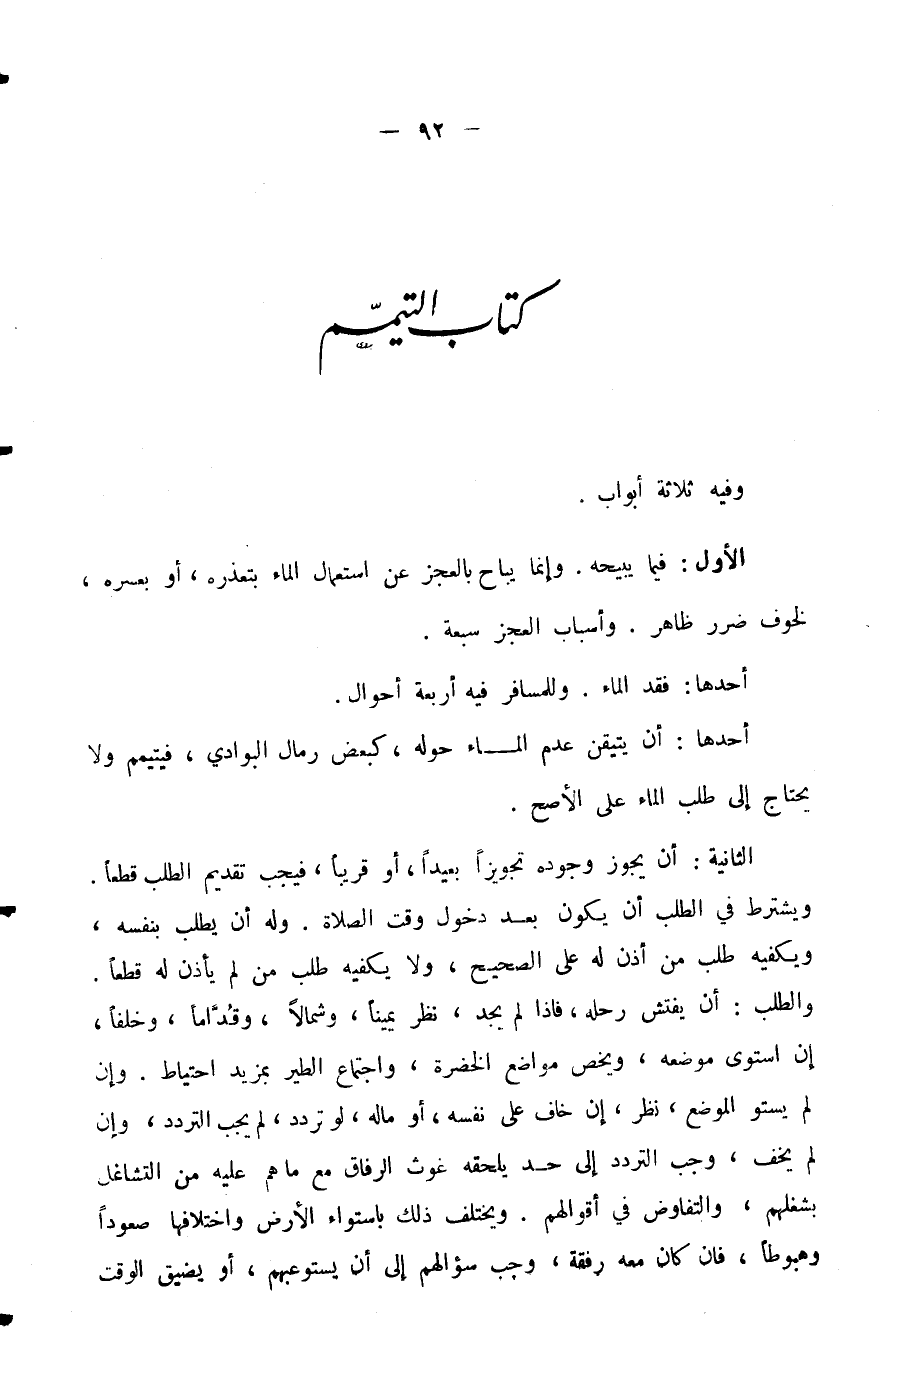 — ٩٢ —
كتاب التيمّم
وفيه ثلاثة أبواب .
الأول : فيما يبيحه . وإنما يباح بالعجز عن استعمال الماء بتعذره ، أو بعسره ،
لخوف ضرر ظاهر . وأسباب العجز سبعة .
أحدها : فقد الماء . وللمسافر فيه أربعة أحوال .
أحدها : أن يتيقن عدم المـــاء حوله ، كبعض رمال البوادي ، فيتيمم ولا
يحتاج إلى طلب الماء على الأصح .
الثانية : أن يجوز وجوده تجويزاً بعيداً ، أو قريباً ، فيجب تقديم الطلب قطعاً .
ويشترط في الطلب أن يكون بعــد دخول وقت الصلاة . وله أن يطلب بنفسه ،
ويكفيه طلب من أذن له على الصحيح ، ولا يكفيه طلب من لم يأذن له قطعاً .
والطلب : أن يفتش رحله ، فاذا لم يجد ، نظر يميناً ، وشمالاً ، وقُدَّاماً ، وخلفاً ،
إن استوى موضعه ، ويخص مواضع الخضرة ، واجتماع الطير بمزيد احتياط . وإن
لم يستو الموضع ، نظر ، إن خاف على نفسه ، أو ماله ، لو تردد ، لم يجب التردد ، وإن
لم يخف ، وجب التردد إلى حــد يلحقه غوث الرفاق مع ما هم عليه من التشاغل
بشغلهم ، والتفاوض في أقوالهم . ويختلف ذلك باستواء الأرض واختلافها صعوداً
وهبوطاً ، فان كان معه رفقة ، وجب سؤالهم إلى أن يستوعبهم ، أو يضيق الوقت